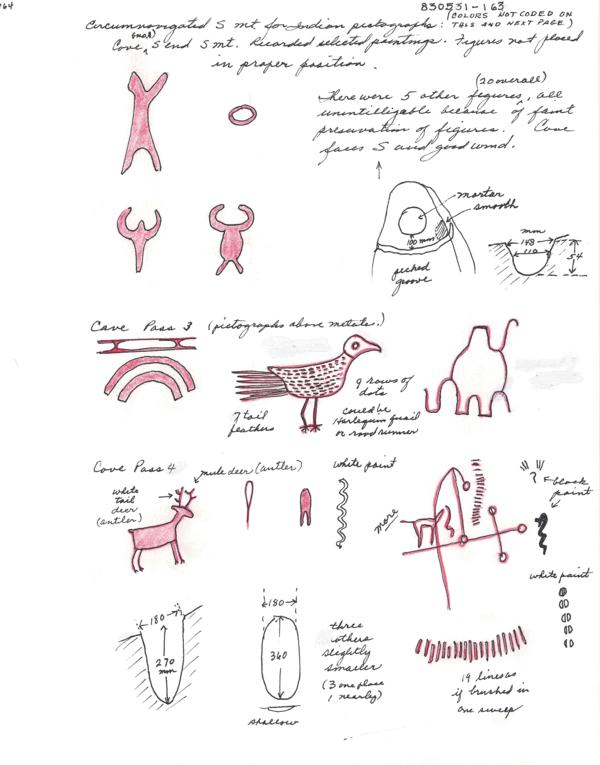 164
830531-163
Circumnavigated S mt for Indian pictographs: (COLORS NOT CODED ON THIS AND NEXT PAGE)
(small)
Cove, S end S mt. Recorded selected paintings. Figures not placed
in proper position.
(20 overall)
There were 5 other figures, all
unintilligable because of faint
preservation of figures. Cove
faces S and good wind.
mortar
smooth
100 mm
pecked
groove
mm
148
110
54
Cave Pass 3 (pictographs above metate.)
7 tail
feathers
9 rows of
dots
could be
Harlequin quail
or road runner
Cove Pass 4
mule deer (antler)
white paint
white
tail
deer
(antler)
more
black
paint
white paint
180
270
mm
180
360
shallow
three
others
slightly
smaller
(3 one place
1 nearby)
19 lines as
if brushed in
one sweep